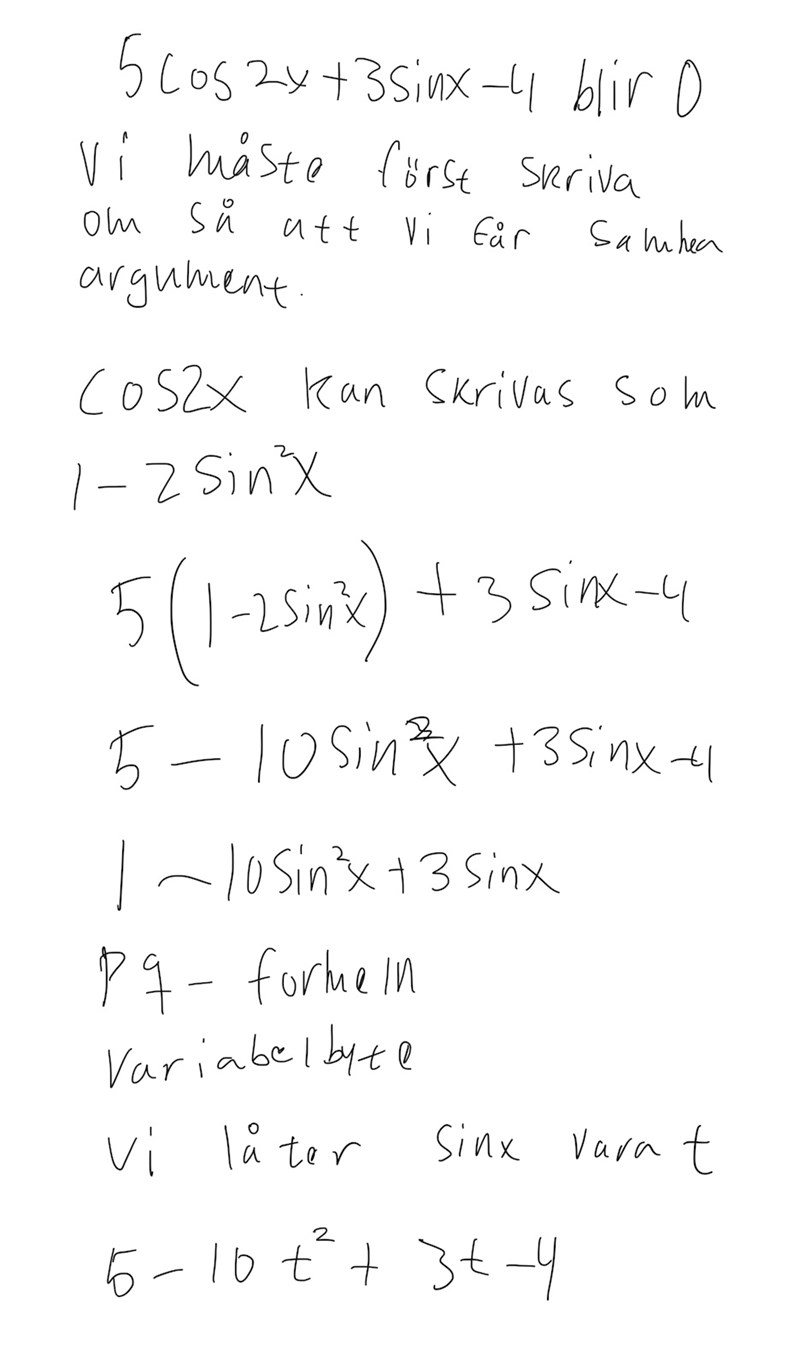 5cos2x+3sinx-4 blir 0
Vi måste först skriva
om så att vi får samma
argument.
Cos2x kan skrivas som
1-2sin²x
5(1-2sin²x)+3sinx-4
5-10sin²x+3sinx-4
1-10sin²x+3sinx
Pq-formeln
Variabelbyte
Vi låter sinx vara t
5-10t²+3t-4